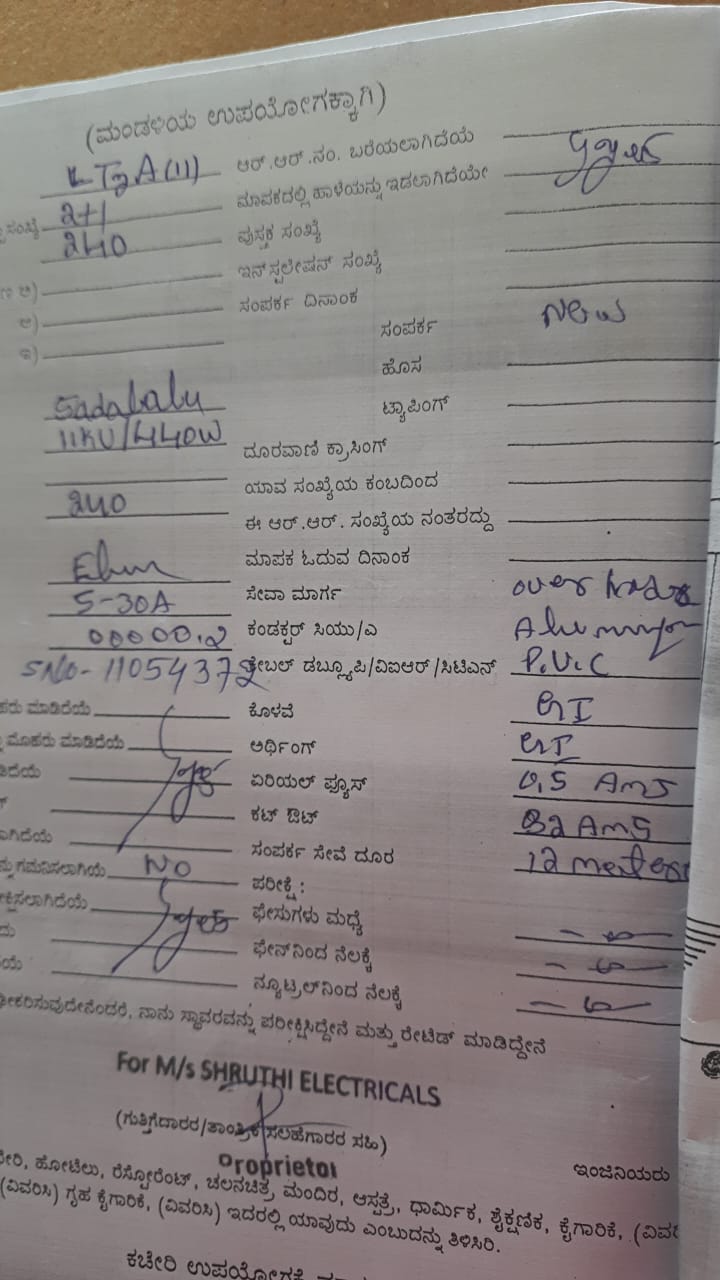 (ಮಂಡಳಿಯ ಉಪಯೋಗಕ್ಕಾಗಿ)
LT2A(11) ಆರ್.ಆರ್.ನಂ. ಬರೆಯಲಾಗಿದೆಯೆ
ಸಂಖ್ಯೆ 2+1 ಮಾಪಕದಲ್ಲಿ ಹಾಳೆಯನ್ನು ಇಡಲಾಗಿದೆಯೇ yes
240 ಪುಸ್ತಕ ಸಂಖ್ಯೆ
ಅ) ಇನ್‌ಸ್ಟಲೇಷನ್ ಸಂಖ್ಯೆ
ಆ) ಸಂಪರ್ಕ ದಿನಾಂಕ
ಇ) ಸಂಪರ್ಕ New
ಹೊಸ
Sadabalu ಟ್ಯಾಪಿಂಗ್
11KV/440W ದೂರವಾಣಿ ಕ್ರಾಸಿಂಗ್
ಯಾವ ಸಂಖ್ಯೆಯ ಕಂಬದಿಂದ
240 ಈ ಆರ್.ಆರ್. ಸಂಖ್ಯೆಯ ನಂತರದ್ದು
ಮಾಪಕ ಓದುವ ದಿನಾಂಕ
5-30A ಸೇವಾ ಮಾರ್ಗ over
00000.2 ಕಂಡಕ್ಟರ್ ಸಿಯು/ಎ
SNO-11054372 ಕೇಬಲ್ ಡಬ್ಲ್ಯೂಪಿ/ವಿಐಆರ್/ಸಿಟಿಎನ್ P.V.C
ಮಾಡಿದೆಯೆ ಕೊಳವೆ GI
ಮೊಹರು ಮಾಡಿದೆಯೆ ಅರ್ಥಿಂಗ್ GI
yes ಏರಿಯಲ್ ಫ್ಯೂಸ್ 0.5 Ams
ಕಟ್ ಔಟ್ 32 Ams
ಸಂಪರ್ಕ ಸೇವೆ ದೂರ 12 meters
ಗಮನಿಸಲಾಗಿಯೆ No ಪರೀಕ್ಷೆ:
yes ಫೇಸುಗಳು ಮಧ್ಯೆ
ಫೇನ್‌ನಿಂದ ನೆಲಕ್ಕೆ
ನ್ಯೂಟ್ರಲ್‌ನಿಂದ ನೆಲಕ್ಕೆ
ನಾನು ಸ್ಥಾವರವನ್ನು ಪರೀಕ್ಷಿಸಿದ್ದೇನೆ ಮತ್ತು ರೇಟಿಡ್ ಮಾಡಿದ್ದೇನೆ
For M/s SHRUTHI ELECTRICALS
(ಗುತ್ತಿಗೆದಾರರ/ತಾಂತ್ರಿಕ ಸಲಹೆಗಾರರ ಸಹಿ)
Proprietor ಇಂಜಿನಿಯರು
ಹೋಟೆಲು, ರೆಸ್ಟೋರೆಂಟ್, ಚಲನಚಿತ್ರ ಮಂದಿರ, ಆಸ್ಪತ್ರೆ, ಧಾರ್ಮಿಕ, ಶೈಕ್ಷಣಿಕ, ಕೈಗಾರಿಕೆ,
(ವಿವರಿಸಿ) ಗೃಹ ಕೈಗಾರಿಕೆ, (ವಿವರಿಸಿ) ಇದರಲ್ಲಿ ಯಾವುದು ಎಂಬುದನ್ನು ತಿಳಿಸಿರಿ.
ಕಚೇರಿ